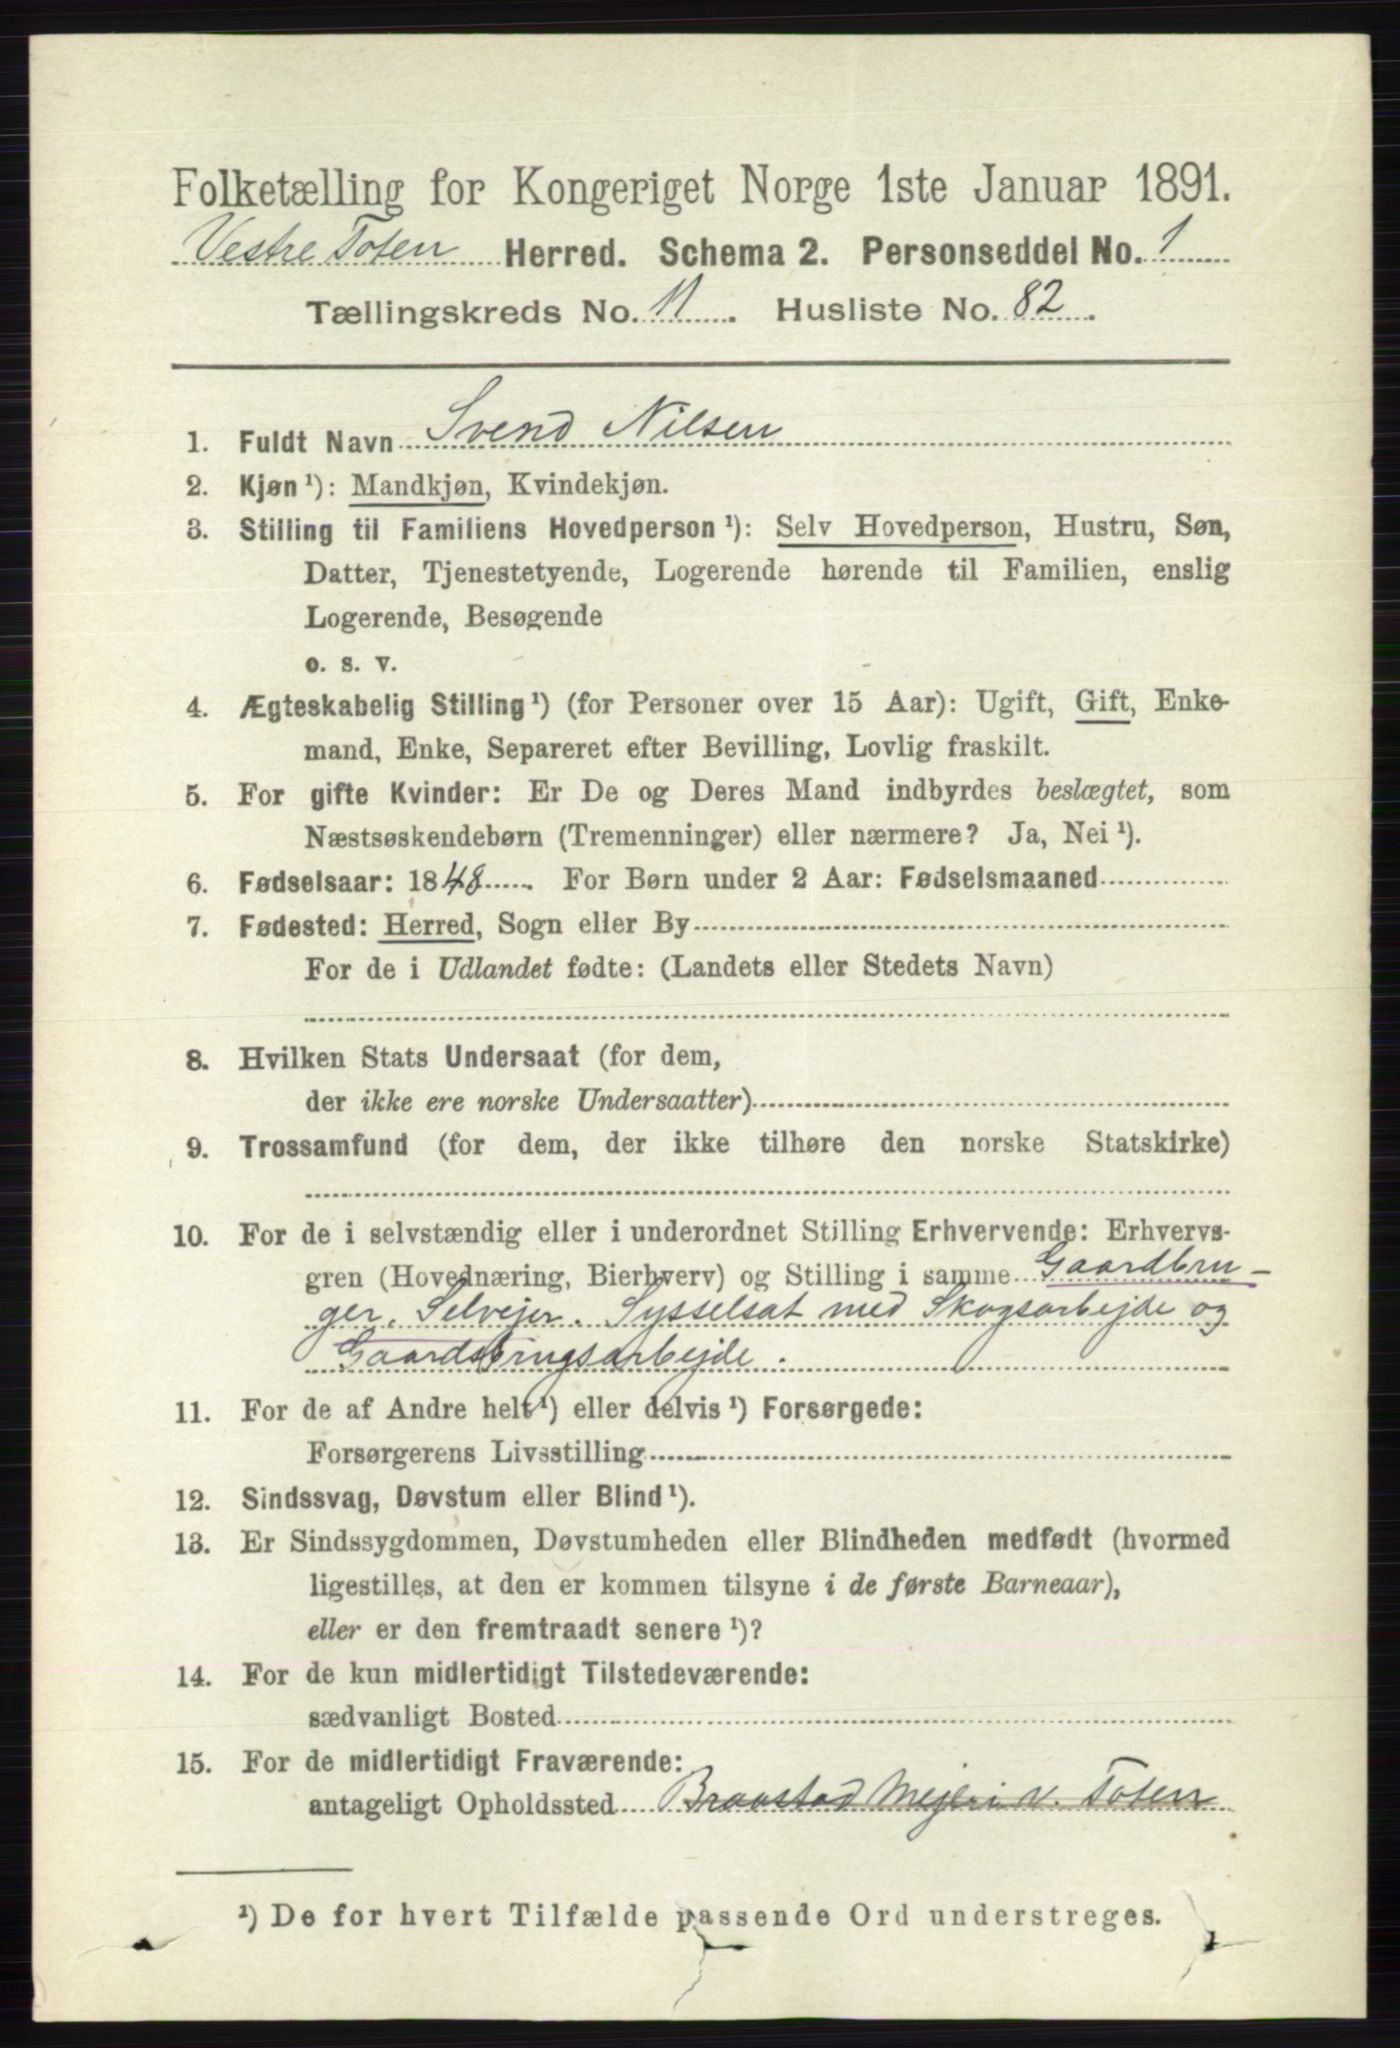 Folketælling for Kongeriget Norge 1ste Januar 1891.
Vestre Toten Herred. Schema 2. Personseddel No. 1
Tællingskreds No. 11. Husliste No. 82.
1. Fuldt Navn Svend Nilsen
2. Kjøn¹): Mandkjøn, Kvindekjøn.
3. Stilling til Familiens Hovedperson¹): Selv Hovedperson, Hustru, Søn,
Datter, Tjenestetyende, Logerende hørende til Familien, enslig
Logerende, Besøgende
o. s. v.
4. Ægteskabelig Stilling¹) (for Personer over 15 Aar): Ugift, Gift, Enke-
mand, Enke, Separeret efter Bevilling, Lovlig fraskilt.
5. For gifte Kvinder: Er De og Deres Mand indbyrdes beslægtet, som
Næstsøskendebørn (Tremenninger) eller nærmere? Ja, Nei¹).
6. Fødselsaar: 1848. For Børn under 2 Aar: Fødselsmaaned
7. Fødested: Herred, Sogn eller By
For de i Udlandet fødte: (Landets eller Stedets Navn)
8. Hvilken Stats Undersaat (for dem,
der ikke ere norske Undersaatter)
9. Trossamfund (for dem, der ikke tilhøre den norske Statskirke)
10. For de i selvstændig eller i underordnet Stilling Erhvervende: Erhvervs-
gren (Hovednæring, Bierhverv) og Stilling i samme Gaardbru-
ger, Selvejer. Sysselsat med Skogsarbejde og
Gaardsbrugsarbejde.
11. For de af Andre helt¹) eller delvis¹) Forsørgede:
Forsørgerens Livsstilling
12. Sindssvag, Døvstum eller Blind¹).
13. Er Sindssygdommen, Døvstumheden eller Blindheden medfødt (hvormed
ligestilles, at den er kommen tilsyne i de første Barneaar),
eller er den fremtraadt senere¹)?
14. For de kun midlertidigt Tilstedeværende:
sædvanligt Bosted
15. For de midlertidigt Fraværende:
antageligt Opholdssted Braastad Mejeri v. Toten
¹) De for hvert Tilfælde passende Ord understreges.